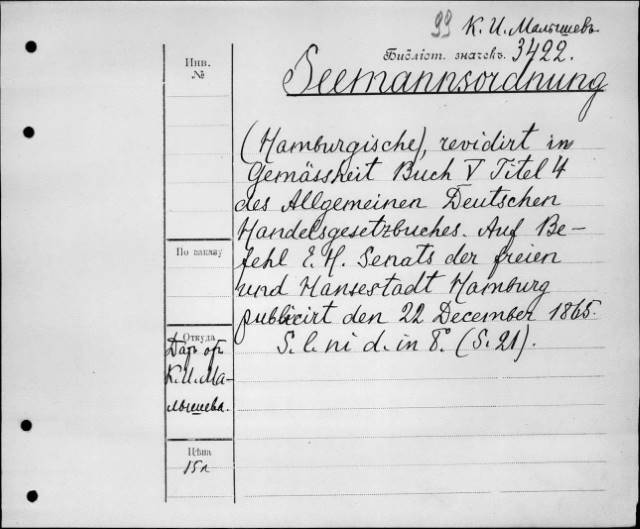 99 К. И. Малышевъ.
Библіот. значекъ. 3422.
Инв.
№
Seemannsordnung
(Hamburgische), revidirt in
Gemässheit Buch V Titel 4
des Allgemeinen Deutschen
Handelsgesetzbuches. Auf Be-
fehl E. H. Senats der freien
und Hansestadt Hamburg
publicirt den 22 December 1865.
S. l. ni d. in 8º. (S. 21).
По заказу
Откуда
Даръ от
К. И. Ма-
лышева.
Цѣна
15 л